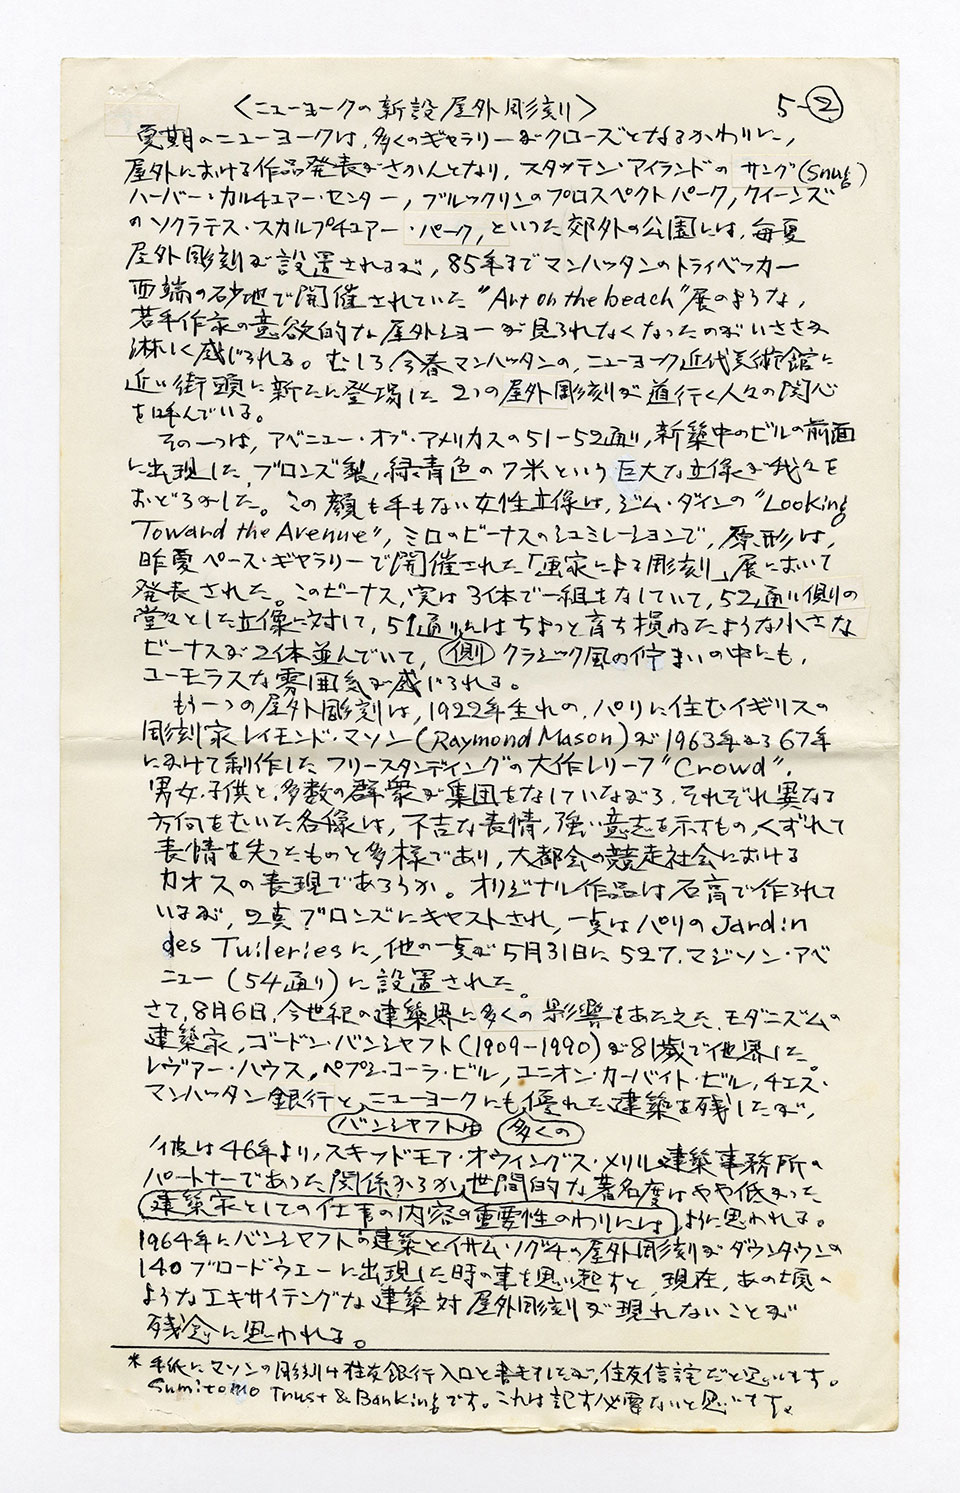 〈ニューヨークの新設屋外彫刻〉 5-②
夏期のニューヨークは,多くのギャラリーがクローズとなるかわりに,
屋外における作品発表がさかんとなり,スタッテン・アイランドの サング(Snug)
ハーバー・カルチュアー・センター,ブルックリンのプロスペクトパーク,クイーンズ
のソクラテス・スカルプチュアー・パーク,といった郊外の公園には,毎夏
屋外彫刻が設置されるが,85年までマンハッタンのトライベッカー
西端の砂地で開催されていた"Art on the beach"展のような,
若手作家の意欲的な屋外ショーが見られなくなったのがいささか
淋しく感じられる。むしろ今春マンハッタンの,ニューヨーク近代美術館に
近い街頭に新たに登場した 2つの屋外彫刻が道行く人々の関心
を呼んでいる。
その一つは,アベニュー・オブ・アメリカスの51-52通り,新築中のビルの前面
に出現した,ブロンズ製,緑青色の7米という巨大な立像が我々を
おどろかした。この顔も手もない女性立像は,ジム・ダインの"Looking
Toward the Avenue",ミロのビーナスのシュミレーションで,原形は,
昨夏ペース・ギャラリーで開催された「画家による彫刻」展において
発表された。このビーナス,実は3体で一組をなしていて,52通り側の
堂々とした立像に対して,51通りにはちょっと育ち損ねたような小さな
ビーナスが2体並んでいて,(側) クラシック風の佇まいの中にも,
ユーモラスな雰囲気が感じられる。
もう一つの屋外彫刻は,1922年生れの,パリに住むイギリスの
彫刻家レイモンド・マソン(Raymond Mason)が1963年から67年
にかけて制作した フリースタンディングの大作レリーフ"Crowd".
男女,子供と,多数の群衆が集団をなしていながら,それぞれ異なる
方向をむいた各像は,不吉な表情,強い意志を示すもの,くずれて
表情を失ったものと多様であり,大都会の競走社会における
カオスの表現であろうか。オリジナル作品は石膏で作られて
いるが,2点ブロンズにキャストされ,一点はパリのJardin
des Tuileriesに,他の一点が5月31日に527.マジソン・アベ
ニュー(54通り)に設置された。
さて,8月6日,今世紀の建築界に多くの影響をあたえた,モダニズムの
建築家,ゴードン・バンシャフト(1909-1990)が81歳で他界した。
レヴァー・ハウス,ペプシ・コーラ・ビル,ユニオン・カーバイト・ビル,チェス・
マンハッタン銀行と,ニューヨークにも優れた建築を残したが,
バンシャフトは 多くの
彼は46年より,スキッドモア・オウィングス・メリル建築事務所の
パートナーであった関係からか,世間的な著名度はやや低かった
建築家としての仕事の内容の重要性のわりには ように思われる。
1964年にバンシャフトの建築とイサム・ノグチの屋外彫刻がダウンタウンの
140ブロードウエーに出現した時の事を思い起すと,現在,あの頃の
ようなエキサイテングな建築対屋外彫刻が現れないことが
残念に思われる。
* 手紙にマソンの彫刻は住友銀行入口と書きましたが,住友信託だと思います。
Sumitomo Trust & Bankingです。これは記す必要ないと思います。